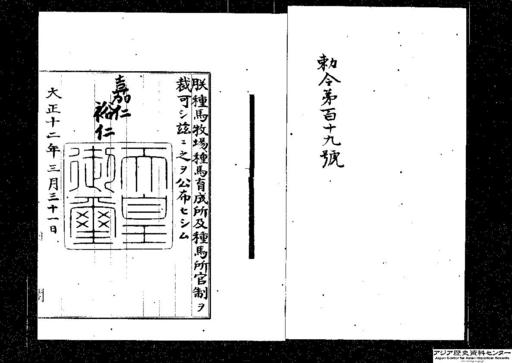 勅令第百十九號
朕種馬牧場種馬育成所及種馬所官制ヲ
裁可シ茲ニ之ヲ公布セシム
嘉仁
裕仁
天皇
御璽
大正十二年三月三十一日
アジア歴史資料センター
Japan Center for Asian Historical Records